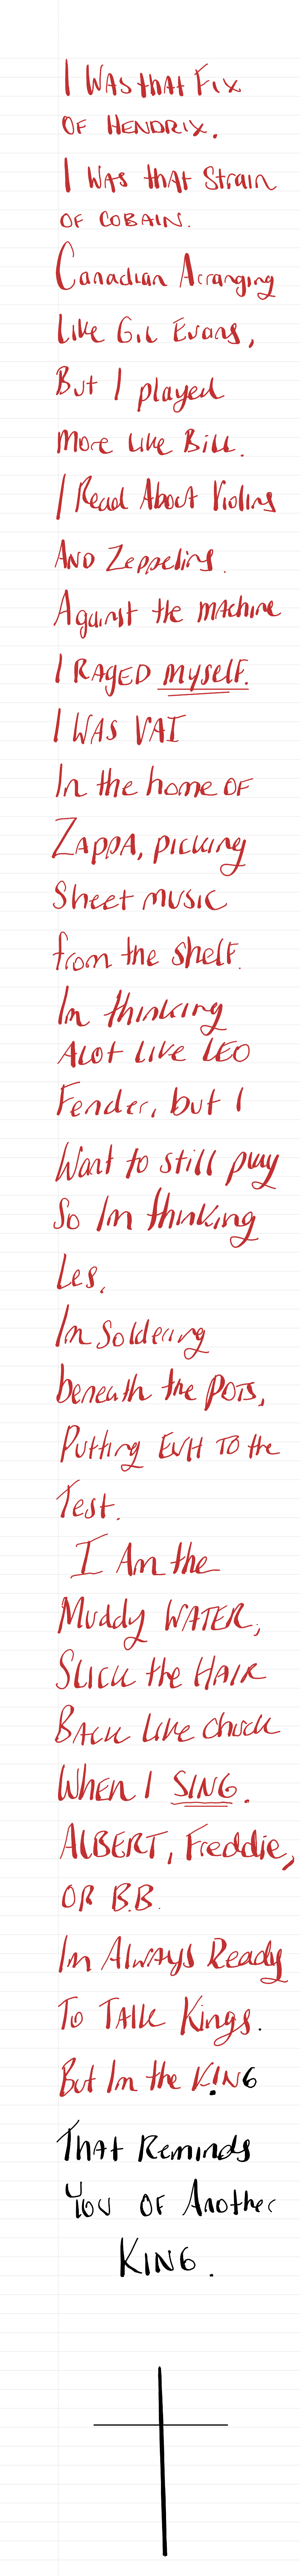 I WAS that Fix
OF HENDRIX.
I WAS thAt Strain
OF COBAIN.
Canadian Arranging
Like Gil Evans,
But I played
more like Bill.
I Read About Violins
AND Zeppelins.
Against the mAchine
I RAGED myself.
I WAS VAI
In the home OF
ZAPPA, picking
Sheet music
from the shelf.
Im thinking
ALOT like LEO
Fender, but I
Want to still play
So Im thinking
Les.
Im Soldering
beneath the POTS,
Putting EVH TO the
Test.
I Am the
Muddy WATER,
SLICK the HAIR
BACK like chuck
WHEN I SING.
ALBERT, Freddie,
OR B.B.
Im AlwAys Ready
To TAlk Kings.
But Im the KING
THAt Reminds
You OF Another
KING.